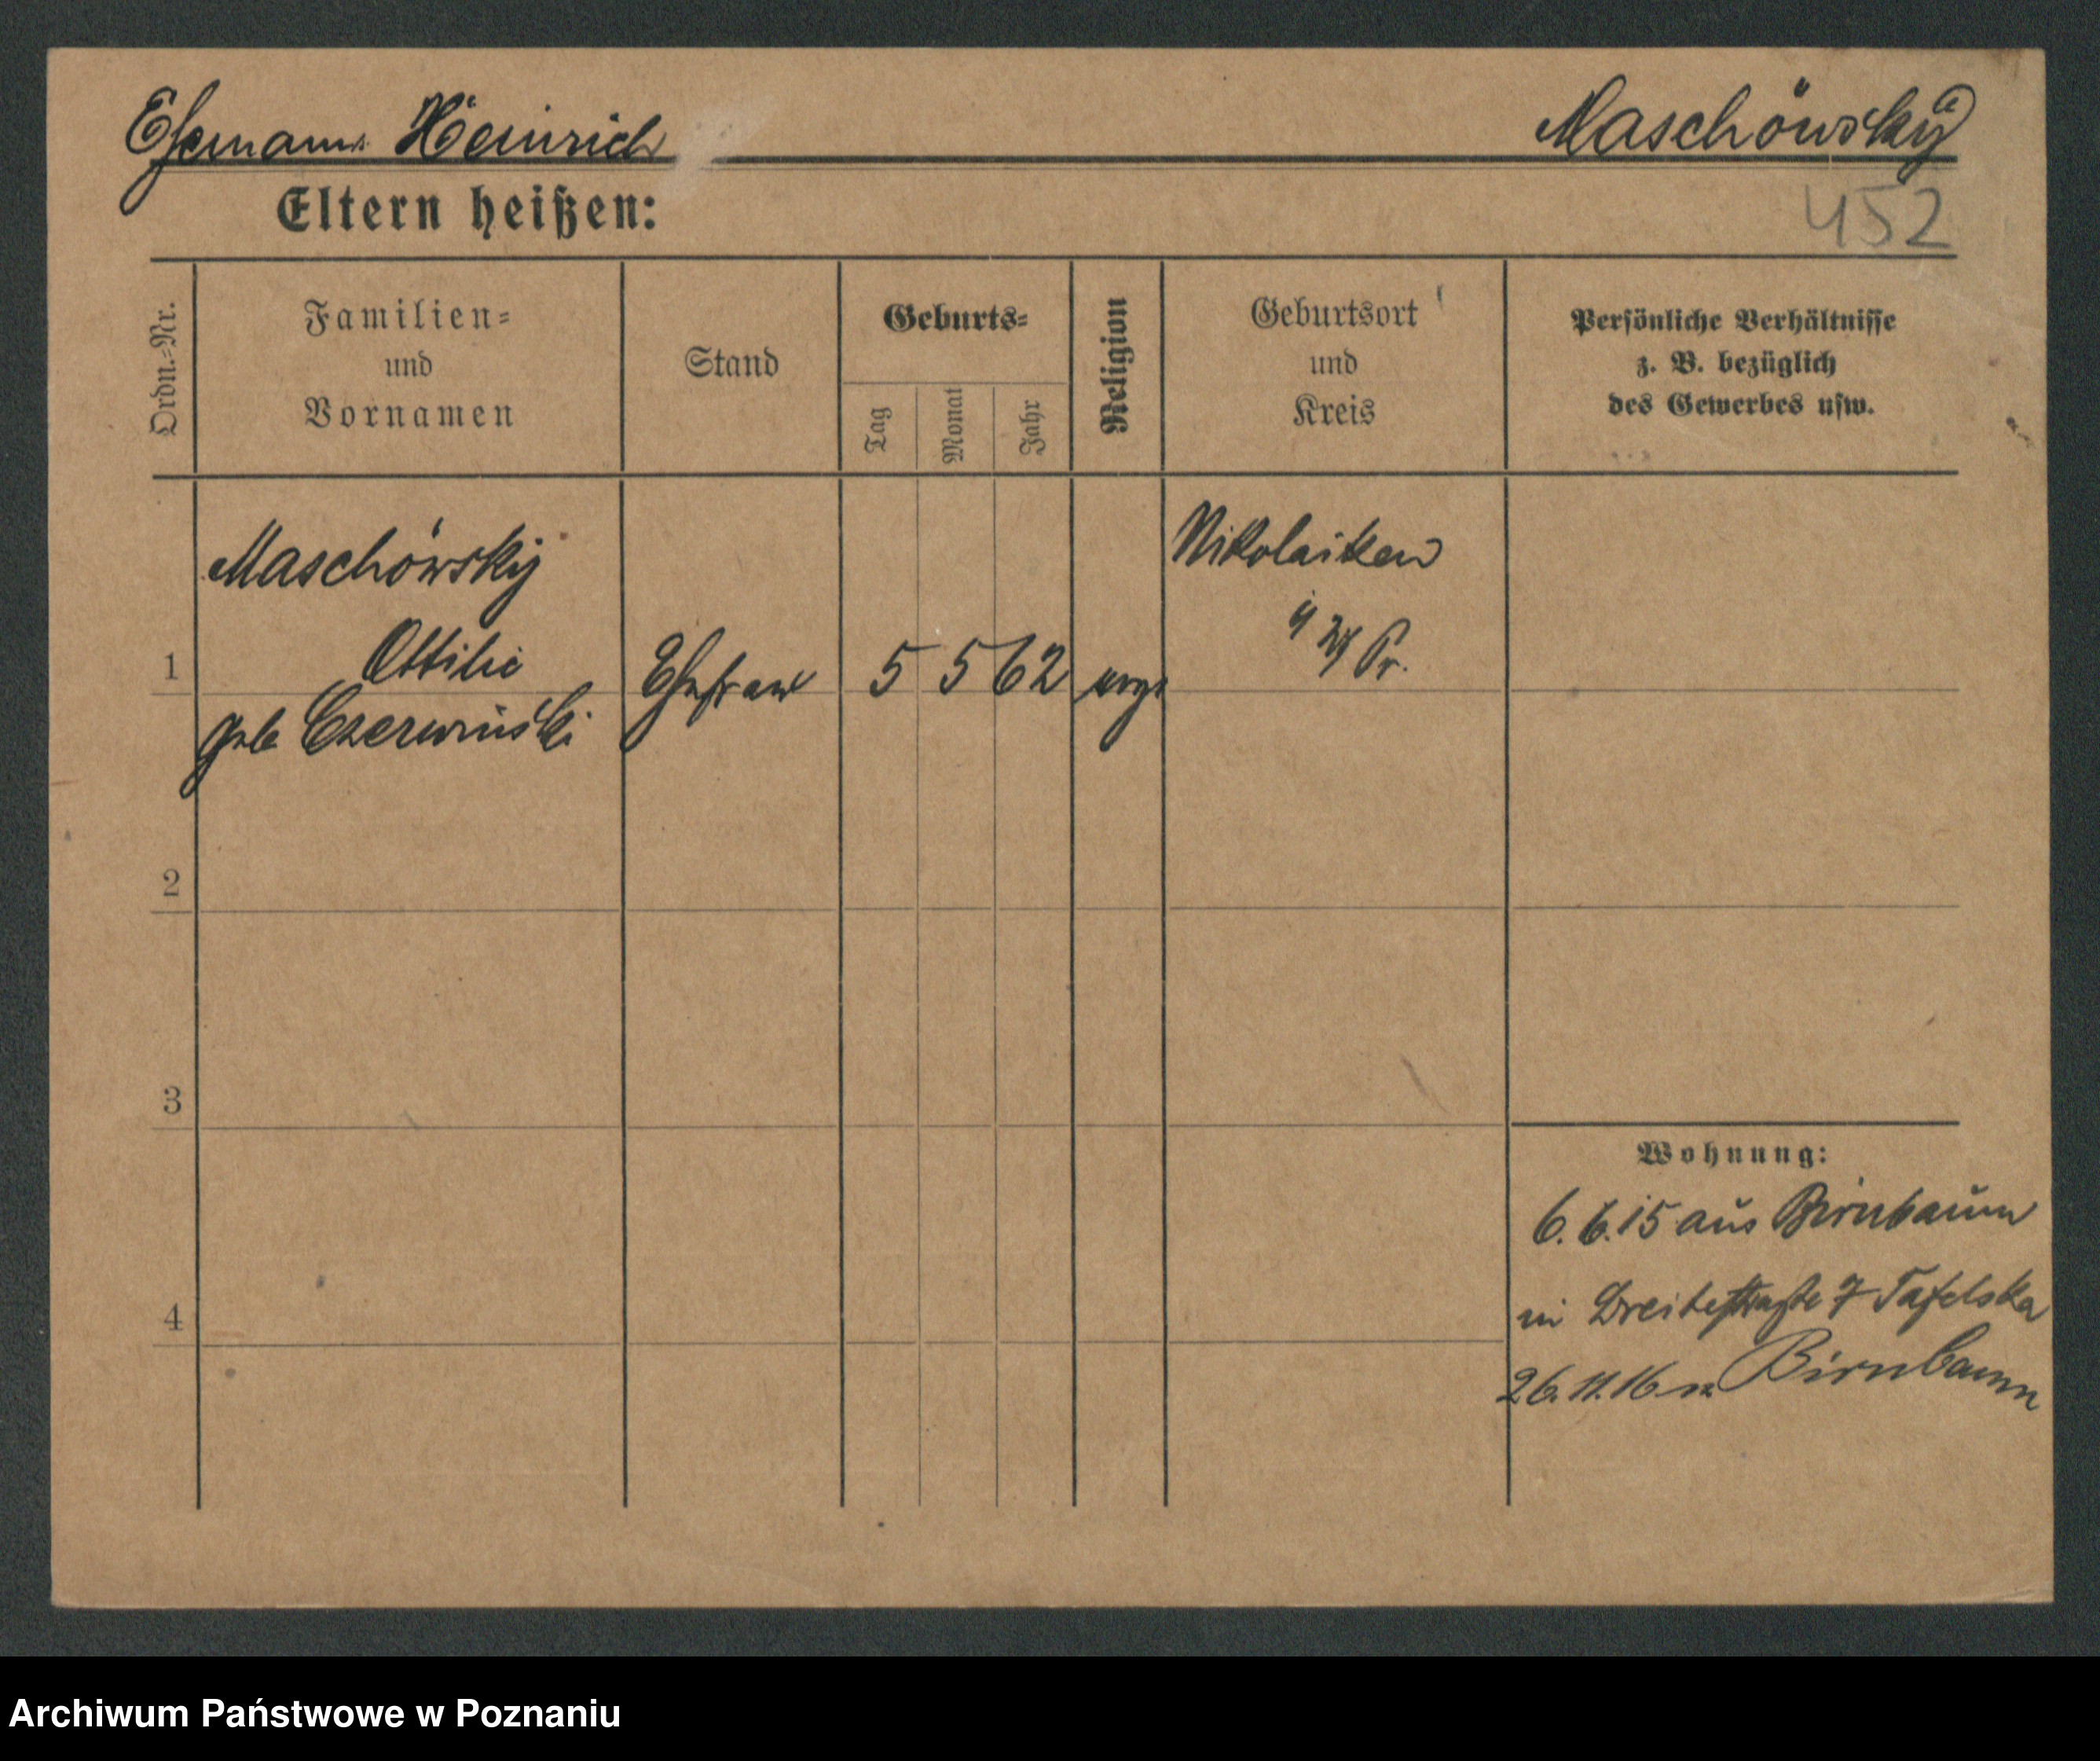 Ehemann Heinrich
Maschowsky
452
Eltern heißen:
Ordn.-Nr.
Familien-
und
Vornamen
Stand
Geburts-
Tag
Monat
Jahr
Religion
Geburtsort
und
Kreis
Persönliche Verhältnisse
z. B. bezüglich
des Gewerbes usw.
Maschowsky
Ottilie
geb Czerwinski
1
Ehefrau
5 5 62
evgl
Nikolaiken
Pr.
2
3
4
Wohnung:
6.6.15 aus Birnbaum
in Breitestraße 7 Tafelska
26.11.16 n Birnbaum
Archiwum Państwowe w Poznaniu